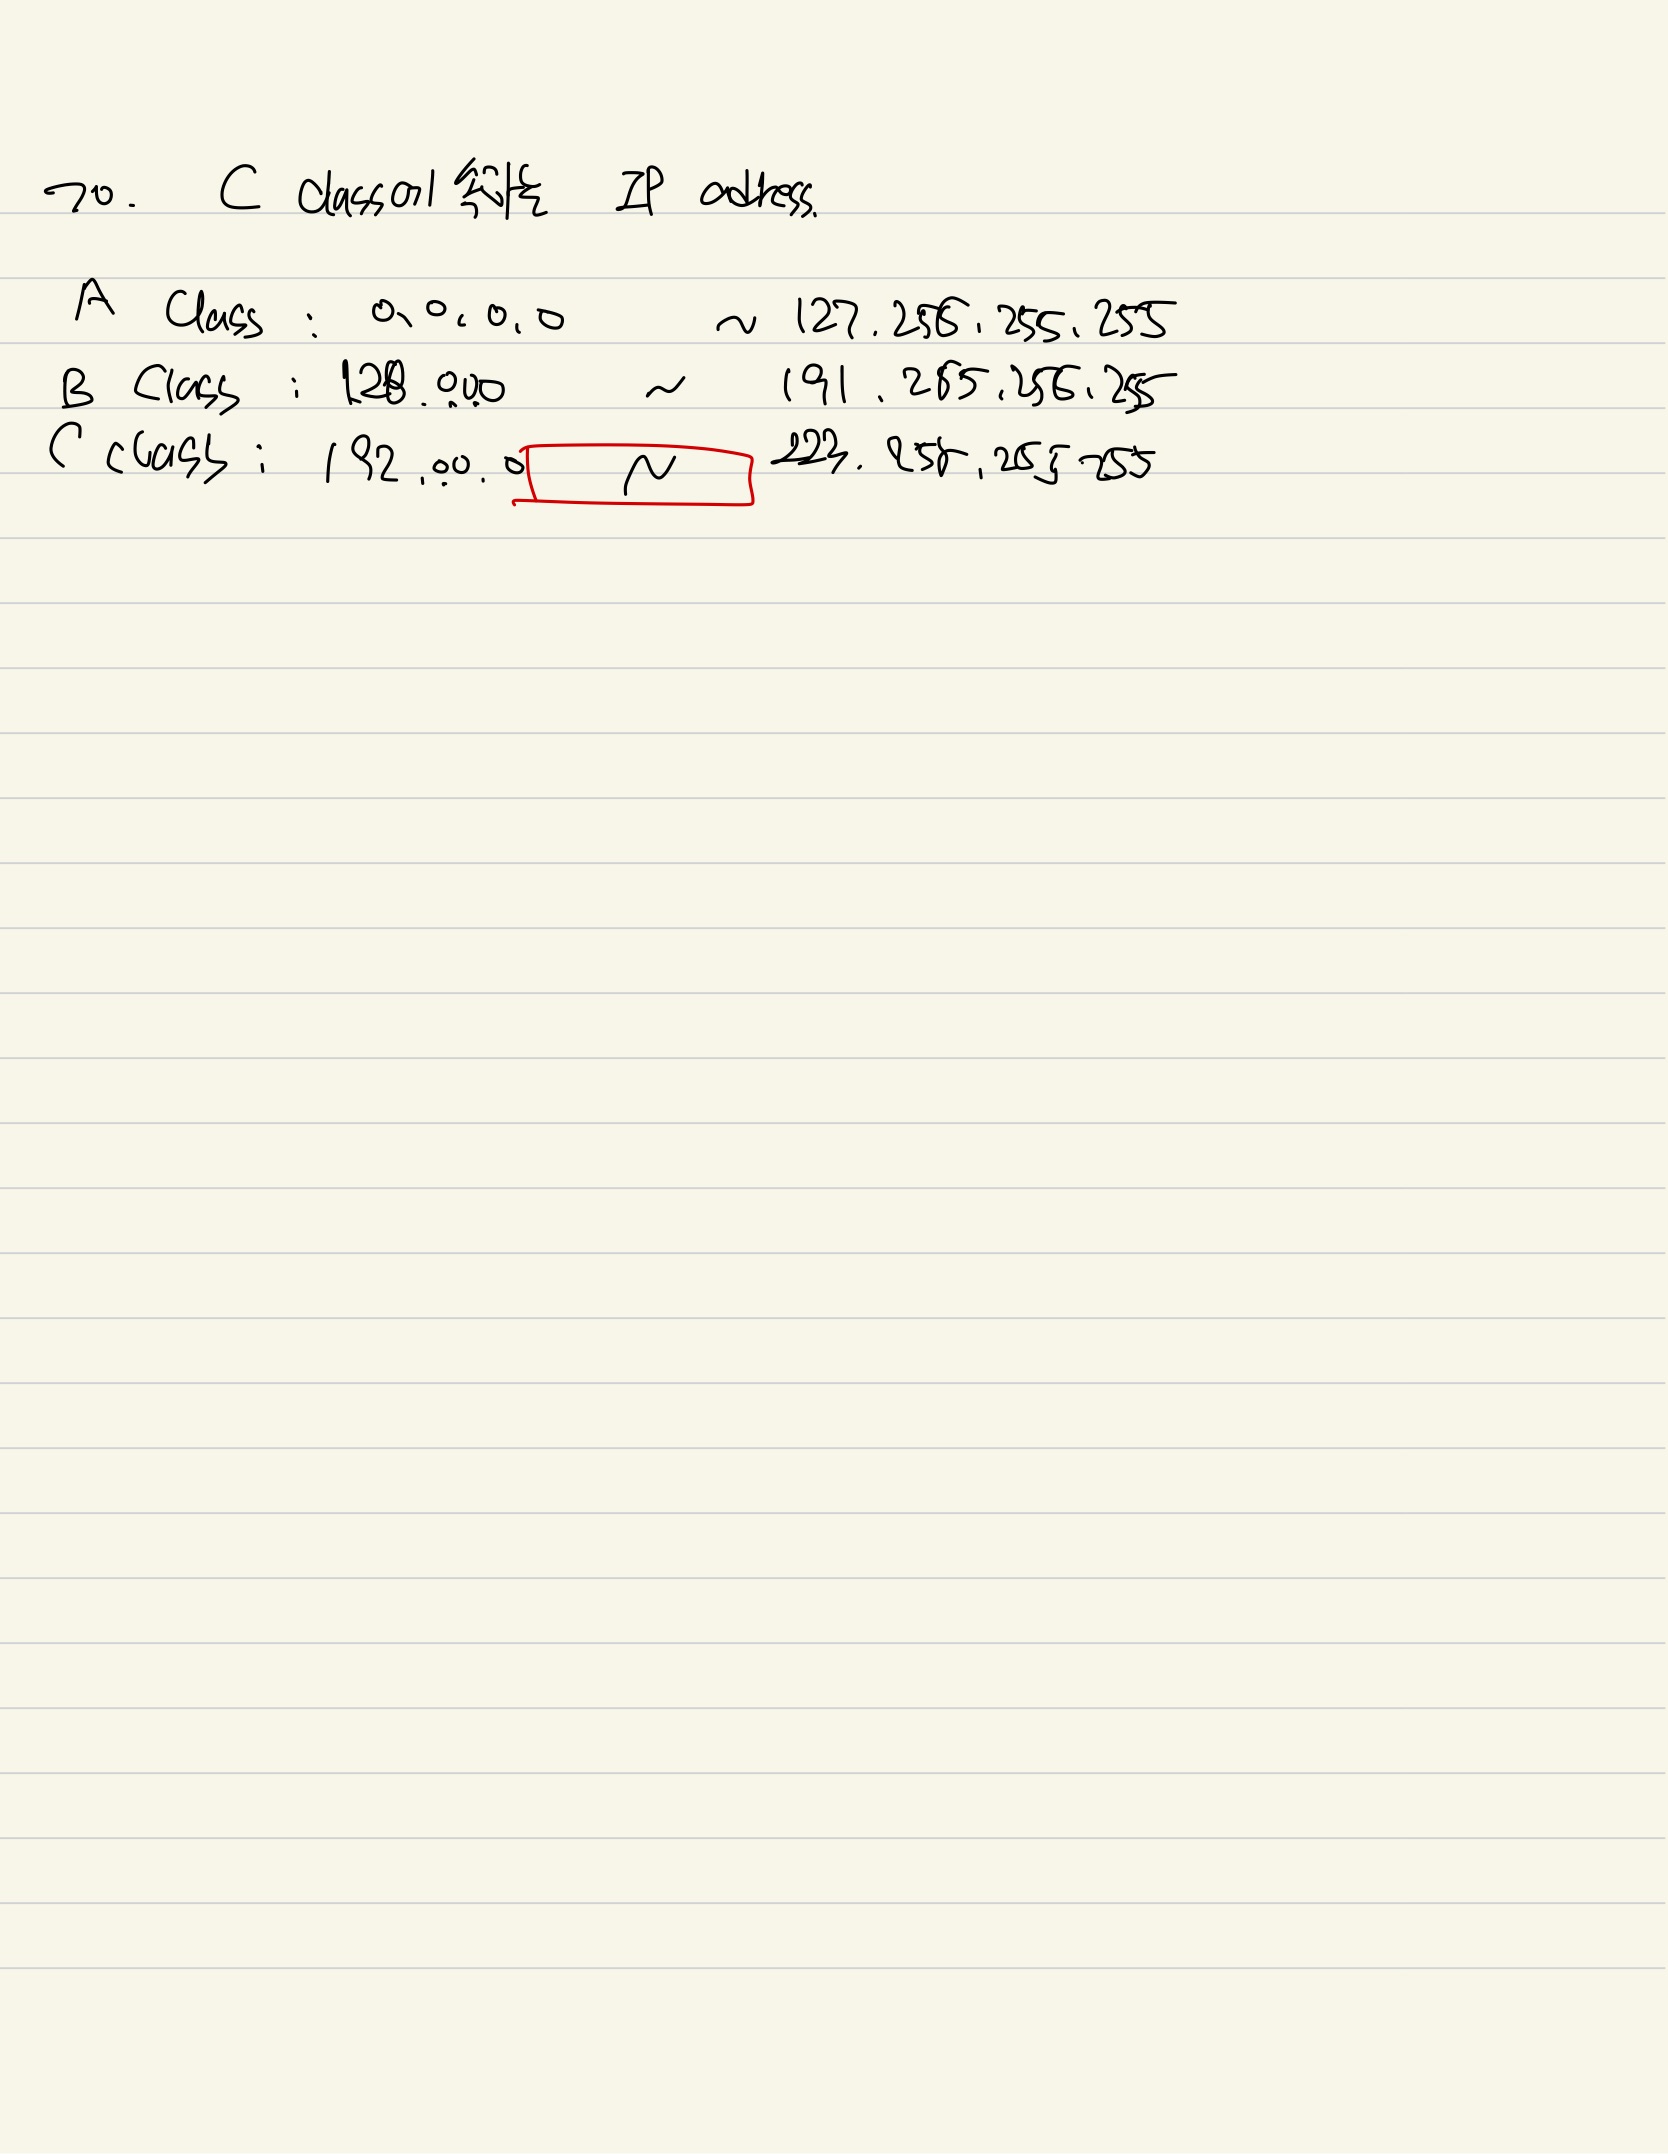 70. C Class에 속하는 IP address.
A Class : 0.0.0.0 ~ 127.255.255.255
B Class : 128.0.0.0 ~ 191.255.255.255
C class : 192.0.0.0 ~ 223.255.255.255